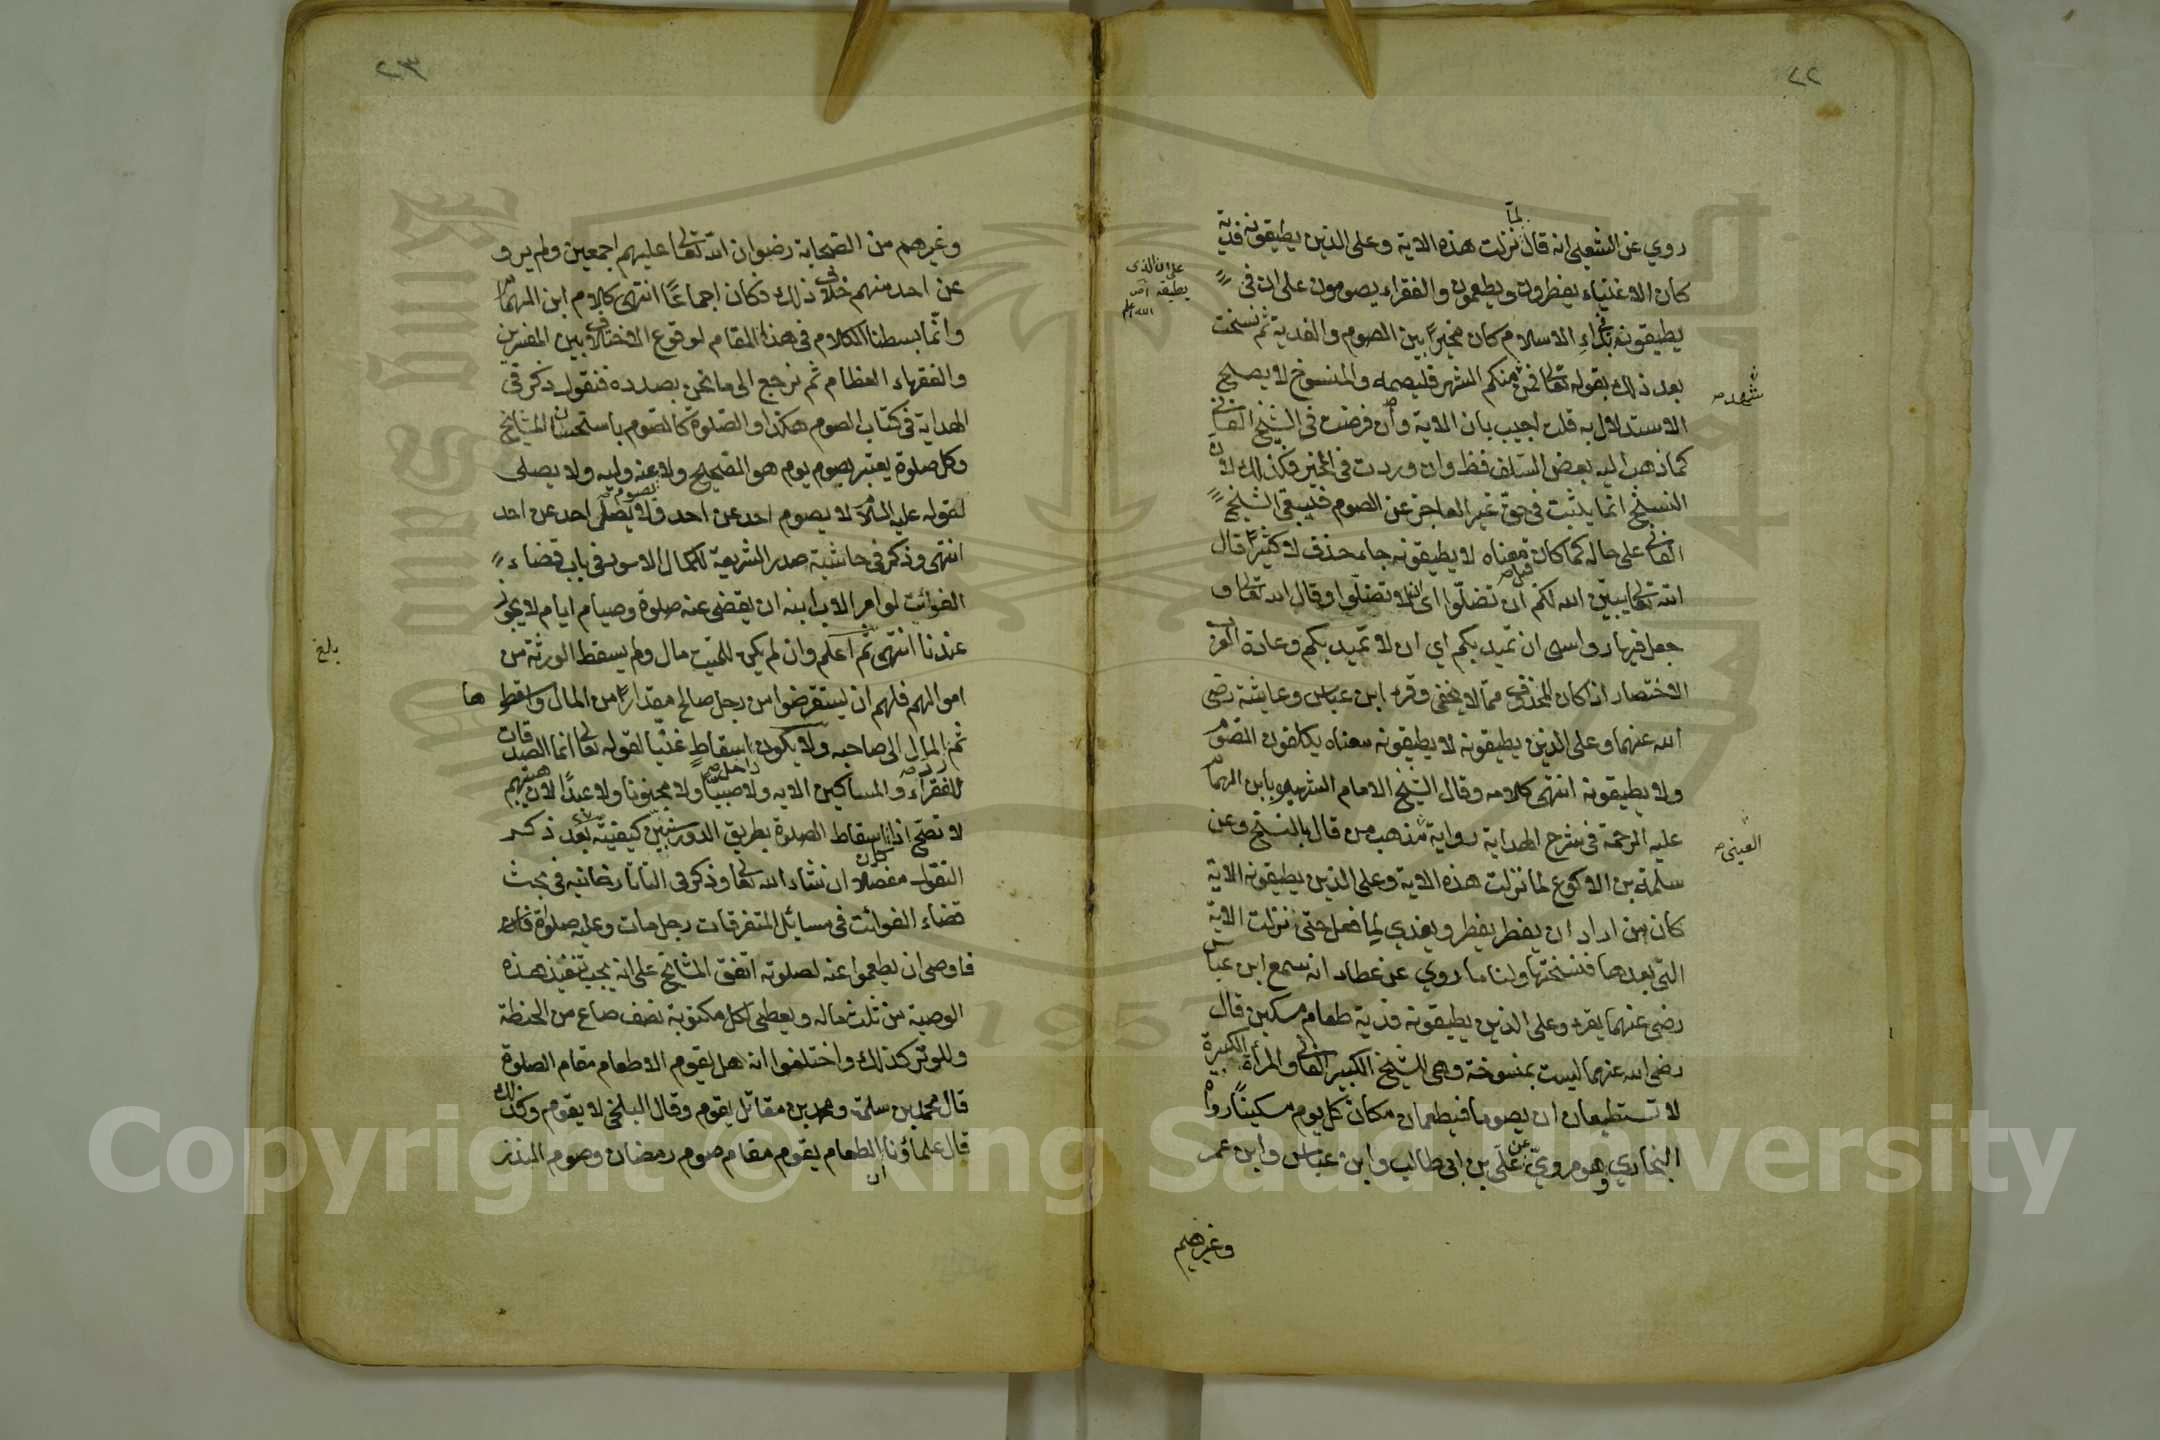 ٢٢
روي عن الشعبي انه قال لمّا نزلت هذه الاية وعلى الذين يطيقونه فدية
كان الاغنياء يفطرون ويطعمون والفقراء يصومون على ان في
يطيقونه بدء الاسلام كان مخيراً بين الصوم والفدية ثم نسخت
بعد ذلك بقوله تعالى فمن منكم الشهر فليصمه والمنسوخ لا يصلح
شهد صح
الاستدلال به قلت اجيب بان الاية وان فرضت في الشيخ الفاني
كما ذهب اليه بعض السلف فظ وان وردت في الخير فكذلك لان
النسخ انما يثبت في حق غير العاجز عن الصوم فيبقى الشيخ
الفاني على حاله كما كان معناه لا يطيقونه جاء حذف لا كثيراً قال
الله تعالى يبين الله لكم ان تضلّوا اى لئلا تضلّوا وقال الله تعالى و
جعل فيها رواسى ان تميد بكم اي ان لا تميد بكم وعادة العرب
الاختصار اذا كان المحذوف ممّا لا يخفى وقرء ابن عباس وعايشة رضى
الله عنهما وعلى الذين يطيقونه لا يطيقونه معناه يكلفون الصوم
ولا يطيقونه انتهى كلامه وقال الشيخ الامام الشهير بابن الهمام
عليه الرحمة في شرح الهداية رواية مذهب من قال بالنسخ وعن
العينى صح
سلمة بن الاكوع لما نزلت هذه الاية وعلى الذين يطيقونه الاية
كان من اراد ان يفطر يفطر ويفدي لما فعل حتى نزلت الاية
التى بعدها فنسختها ولنا ما روي عن عطاء انه سمع ابن عباس
رضى عنهما يقرء وعلى الذين يطيقونه فدية طعام مسكين قال
رضى الله عنهما ليست بمنسوخة وهى للشيخ الكبير الفانى والمرأة الكبيرة
لا تستطيعان ان يصوما فيطعمان مكان كل يوم مسكيناً رواه
البخاري وهو مروي عن على بن ابى طالب وابن عباس وابن عمر
وغيرهم
٢٣
وغيرهم من الصحابة رضوان الله تعالى عليهم اجمعين ولم يرو
عن احد منهم خلاف ذلك فكان اجماعاً انتهى كلام ابن الهمام
وانما بسطنا الكلام في هذا المقام لوقوع الاختلاف بين المفسرين
والفقهاء العظام ثم نرجع الى ما نحن بصدده فنقول ذكر في
الهداية في كتاب الصوم هكذا والصلوة كالصوم باستحسان المشايخ
وكل صلوة يعتبر بصوم يوم هو الصحيح ولا عنه وليه ولا يصلى
يصوم صح
لقوله عليه السلام لا يصوم احد عن احد ولا يصلى احد عن احد
انتهى وذكر في حاشية صدر الشريعة لكمال الاسود في باب قضاء
الفوائت لو امر الاب ابنه ان يقضى عنه صلوة وصيام ايام لا يجوز
عندنا انتهى ثم اعلم وان لم يكن للميت مال ولم يسقط الورثة من
بلغ
اموالهم فلهم ان يستقرضوا من رجل صالح مقداراً من المال واسقطوها
ثم المال الى صاحبه ولا يكون اسقاط غنيا لقوله تعالى انما الصدقات
رد صح
للفقراء والمساكين الاية ولا صبيا ولا مجنونا ولا عبدًا لان هبتهم
لا تصح اذا اسقاط الصلوة بطريق الدور سنبين كيفيته بعد ذكر
النقول مفصلا ان شاء الله تعالى وذكر في التاتارخانيه في بحث
قضاء الفوائت في مسائل المتفرقات رجل مات وعليه صلوة فائت
فاوصى ان يطعموا عنه لصلوته اتفق المشايخ على انه يجب تنفيذ هذه
الوصية من ثلث ماله ويعطى لكل مكتوبة نصف صاع من الحنطة
وللوتر كذلك واختلفوا انه هل يقوم الاطعام مقام الصلوة
قال محمد بن سلمة ومحمد بن مقاتل يقوم وقال البلخى لا يقوم وكذلك
قال علماؤنا ان الطعام يقوم مقام صوم رمضان وصوم النذر
King Saud
1957
Copyright © King Saud University